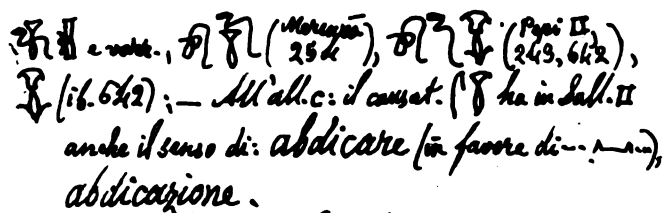 e varr., (Merenrā 254), (Pepi II, 249, 642),
(ib. 642); — All'all.c: il causat. ha in Sall. II
anche il senso di: abdicare (in favore di--- ),
abdicazione.